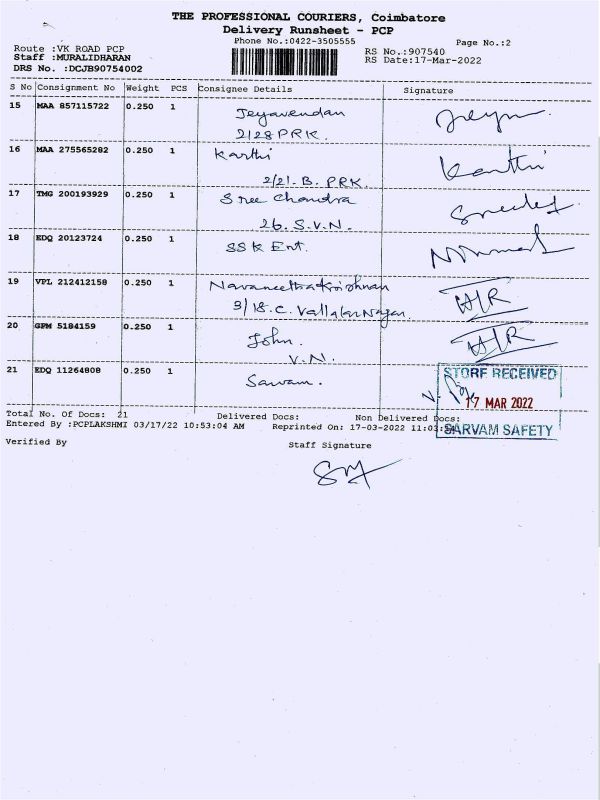 THE PROFESSIONAL COURIERS, Coimbatore
Delivery Runsheet - PCP
Phone No.:0422-3505555
Page No.:2
Route :VK ROAD PCP
RS No.:907540
Staff :MURALIDHARAN
RS Date:17-Mar-2022
DRS No. :DCJB90754002
S No Consignment No Weight PCS Consignee Details Signature
15 MAA 857115722 0.250 1 Jeyavendan
2/28 PRK.
16 MAA 275565282 0.250 1 Karthi Karthi
2/21. B. PRK.
17 TMG 200193929 0.250 1 Sree Chandra
26. S.V.N.
18 EDQ 20123724 0.250 1 SSK Ent.
19 VPL 212412158 0.250 1 Navaneethakrishnan
3/18.C. Vallalar Nagar.
20 GPM 5184159 0.250 1 John.
V.N.
21 EDQ 11264808 0.250 1 Sarvam.
STORE RECEIVED
17 MAR 2022
SARVAM SAFETY
Total No. Of Docs: 21 Delivered Docs: Non Delivered Docs:
Entered By :PCPLAKSHMI 03/17/22 10:53:04 AM Reprinted On: 17-03-2022 11:03
Verified By Staff Signature